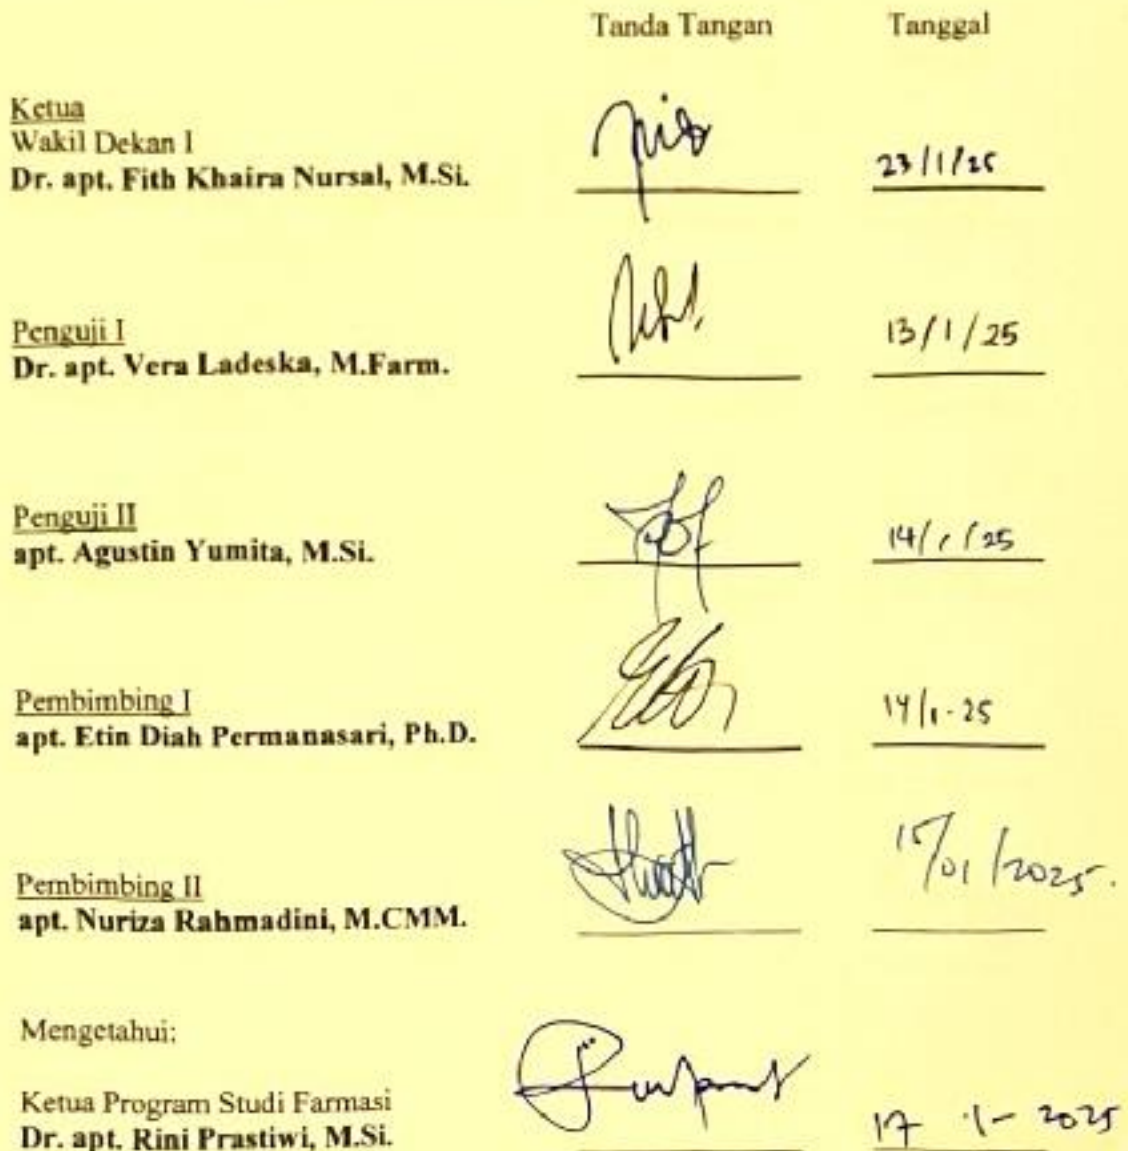 Tanda Tangan Tanggal
Ketua
Wakil Dekan I
Dr. apt. Fith Khaira Nursal, M.Si. 23/1/25
Penguji I 13/1/25
Dr. apt. Vera Ladeska, M.Farm.
Penguji II
apt. Agustin Yumita, M.Si. 14/1/25
Pembimbing I 14/1-25
apt. Etin Diah Permanasari, Ph.D.
Pembimbing II 15/01/2025.
apt. Nuriza Rahmadini, M.CMM.
Mengetahui:
Ketua Program Studi Farmasi
Dr. apt. Rini Prastiwi, M.Si. 17 -1- 2025